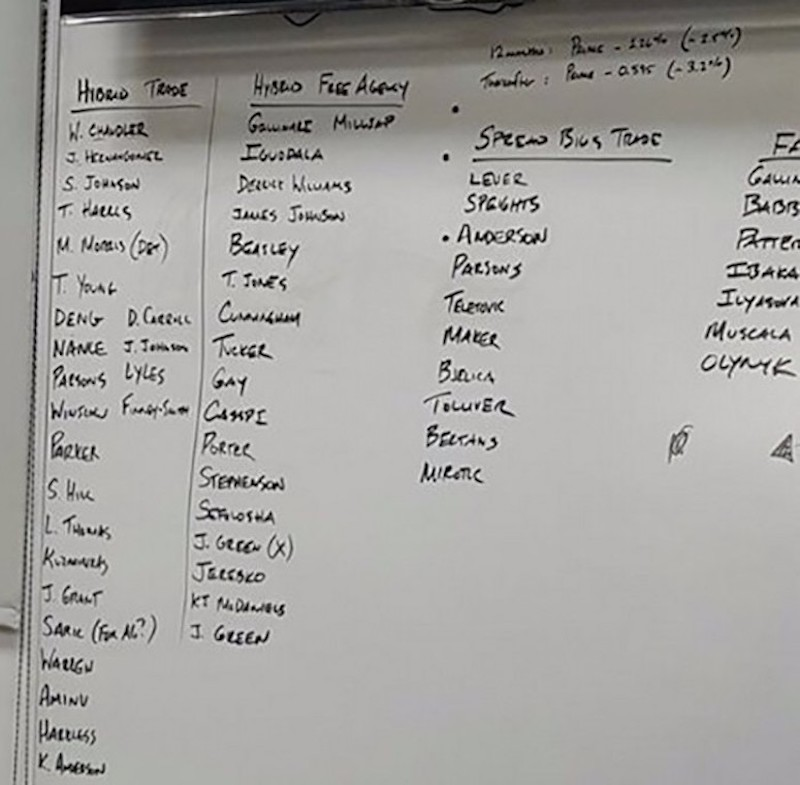 12 months: Prime - 2.26% (-2.5%)
Thereafter: Prime - 0.595 (-3.2%)
HYBRID TRADE
W. CHANDLER
J. HERNANGOMEZ
S. JOHNSON
T. HARRIS
M. MORRIS (DET)
T. YOUNG
DENG D. CARROLL
NANCE J. JOHNSON
PARSONS LYLES
WINSLOW FINNEY-SMITH
PARKER
S. HILL
L. THOMAS
KUZMINSKAS
J. GRANT
SARIC (FOR AG?)
WARREN
AMINU
HARKLESS
K. ANDERSON
HYBRID FREE AGENCY
GALLINARI MILLSAP
IGUODALA
DERRICK WILLIAMS
JAMES JOHNSON
BEASLEY
T. JONES
CUNNINGHAM
TUCKER
GAY
CASSPI
PORTER
STEPHENSON
SEFOLOSHA
J. GREEN (X)
JEREBKO
KJ MCDANIELS
J. GREEN
SPREAD BIGS TRADE
LEUER
SPEIGHTS
• ANDERSON
PARSONS
TELETOVIC
MAKER
BJELICA
TOLLIVER
BERTANS
MIROTIC
FA
GALLIN
BABB
PATTER
IBAKA
ILYASOVA
MUSCALA
OLYNYK